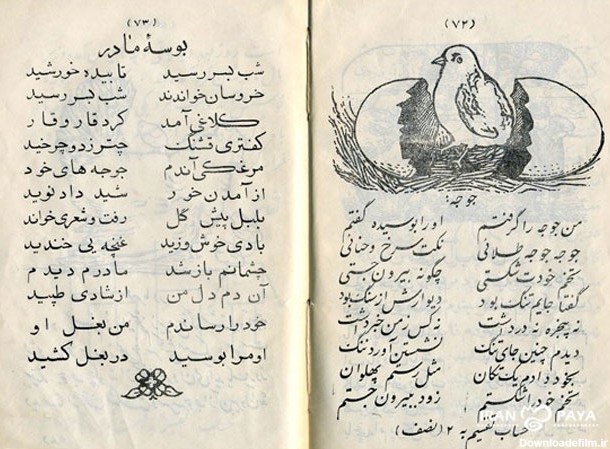 (۷۲)
جوجه:
من جوجه را گرفتم اورا بوسیده گفتم
جوجه جوجه طلائی نکت سرخ و حنائی
تخم خودت شکستی چگونه بیرون جستی
گفتا جایم تنگ بود دیوارش از سنگ بود
نه پنجره نه در داشت نه کس ز من خبر داشت
دیدم چنین جای تنگ نشستن آورد ننگ
بخود دادم یک تکان مثل رستم پهلوان
تخم خود را شکستم زود ببیرون جستم
حساب تقسیم به ۲ (نصف)
(۷۳)
بوسهٔ مادر
شب بسر رسید تابیده خورشید
خروسان خواندند شب بسر رسید
کلاغی آمد کرد قار و قار
کفتری قشنگ چتر زد و چرخید
مرغکی آندم جوجه های خود
از آمدن خور شید داد نوید
بلبل پیش گل رفت و شعری خواند
بادی خوش وزید غنچه یی خندید
چشمانم باز شد مادرم دیدم
آن دم دل من از شادی طپید
خود را رساندم من بغل او
او مرا بوسید در بغل کشید
IRAN PAYA
Downloadefilm.ir